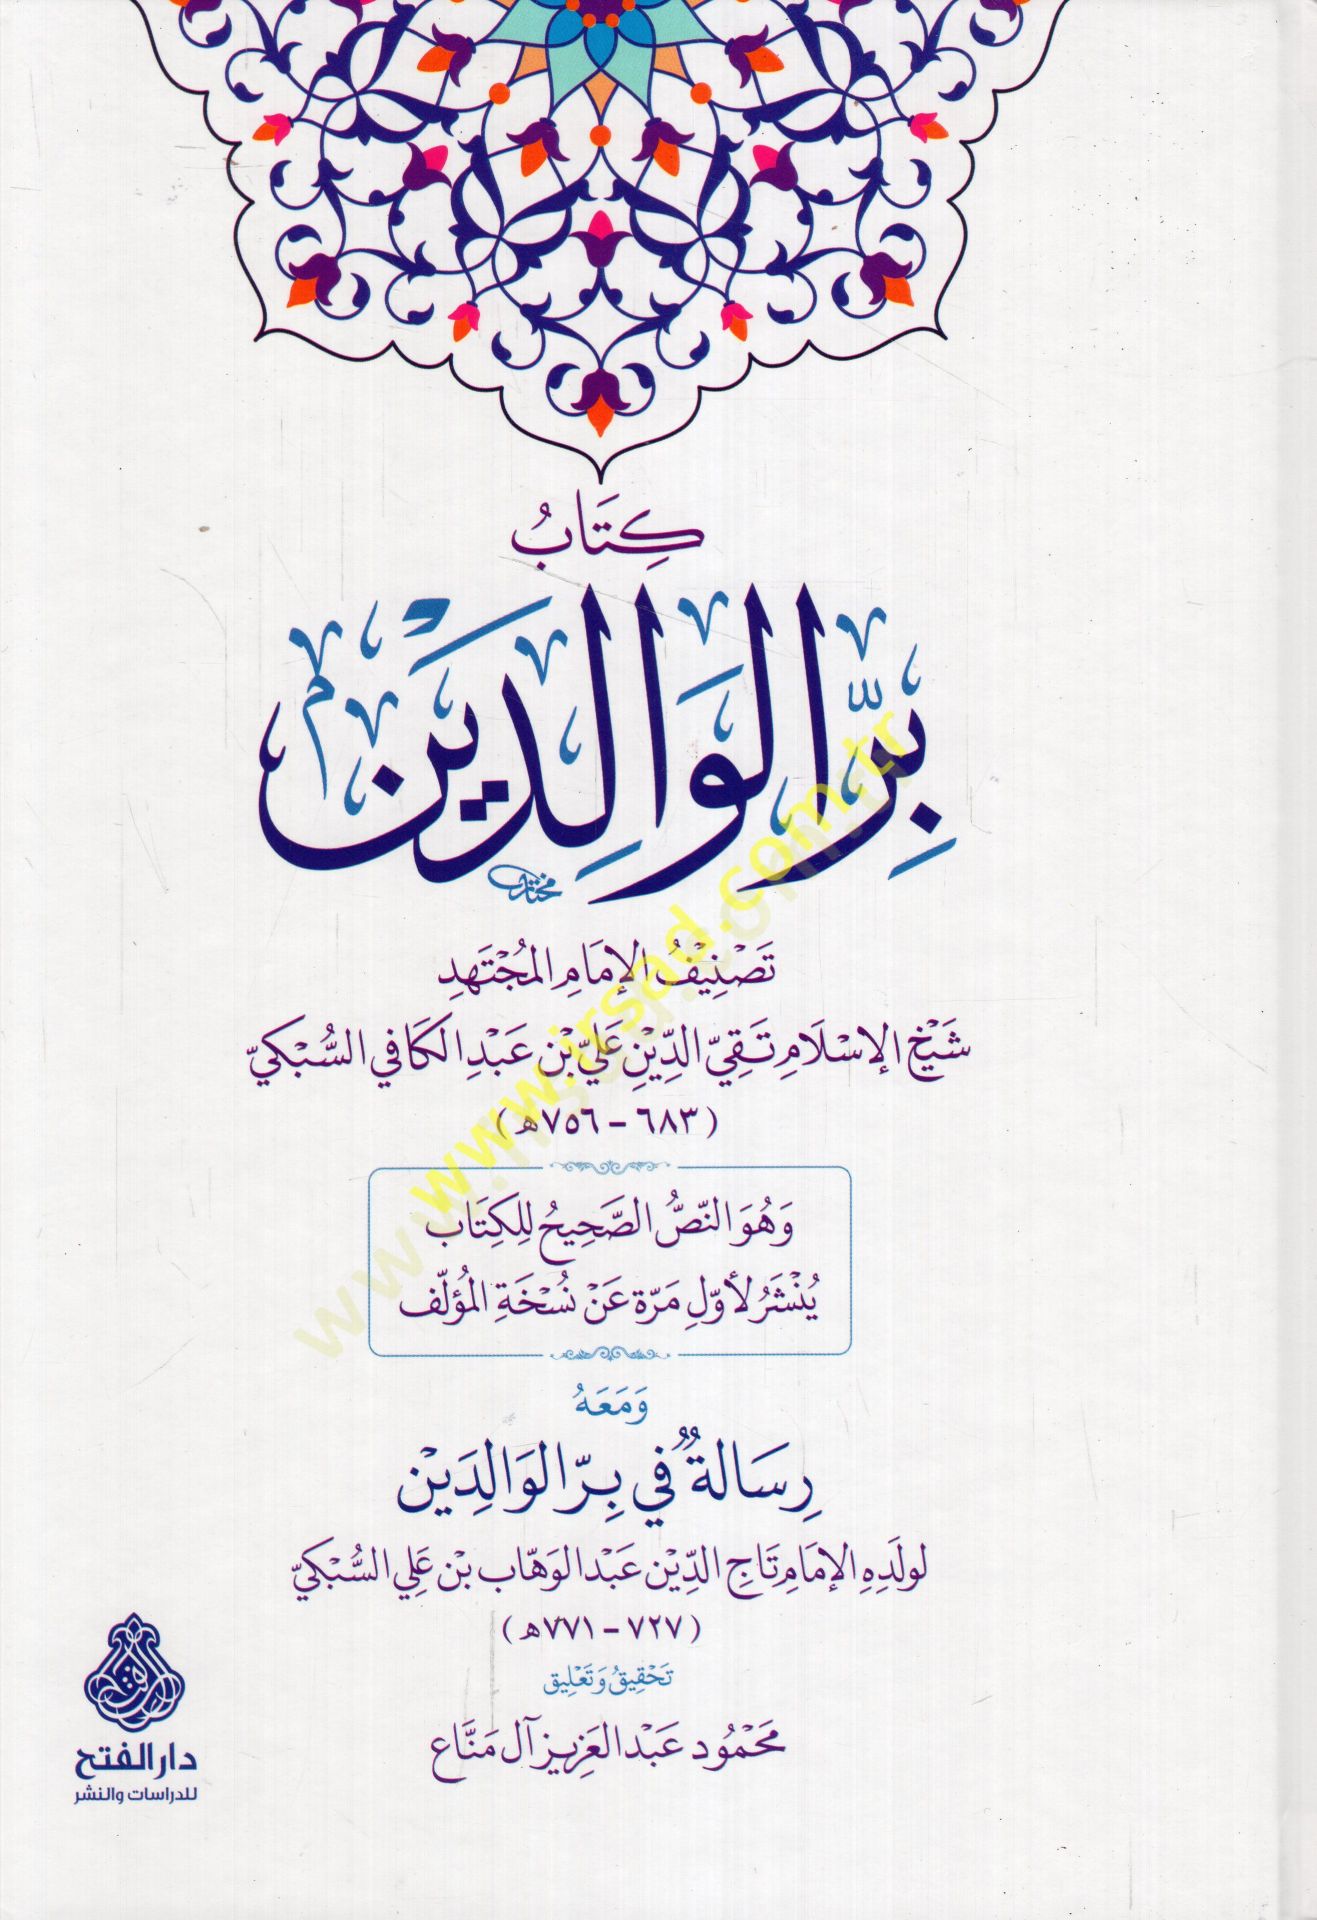 كِتَابُ
بِرِّ الوَالِدَيْن
مختار
تَصْنِيْفُ الإمَامِ المُجْتَهِدِ
شَيْخِ الإسْلَامِ تَقِيِّ الدِّيْنِ عَلِيِّ بْن عَبْدِ الكَافِي السُّبْكِيّ
(٦٨٣ - ٧٥٦ه)
وَهُوَ النّصُّ الصَّحِيْحُ لِلكِتَاب
يُنْشَرُ لأوّلِ مَرّة عَنْ نُسْخَةِ المُؤلّف
وَمَعَهُ
رِسَالَةٌ فِي بِرّ الوَالِدَيْن
لولَدِهِ الإمَامِ تَاجِ الدِّيْن عَبْد الوَهّاب بْن عَلِي السُّبْكِيّ
(٧٢٧ - ٧٧١ه)
تَحْقِيْقُ وَتَعْلِيق
مَحْمُود عَبْد العَزِيز آل مَنَّاع
دار الفتح
للدراسات والنشر
www.irsad.com.tr